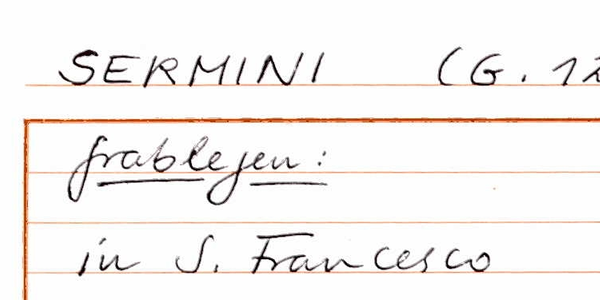 SERMINI (G. 12
grablegen:
in S. Francesco